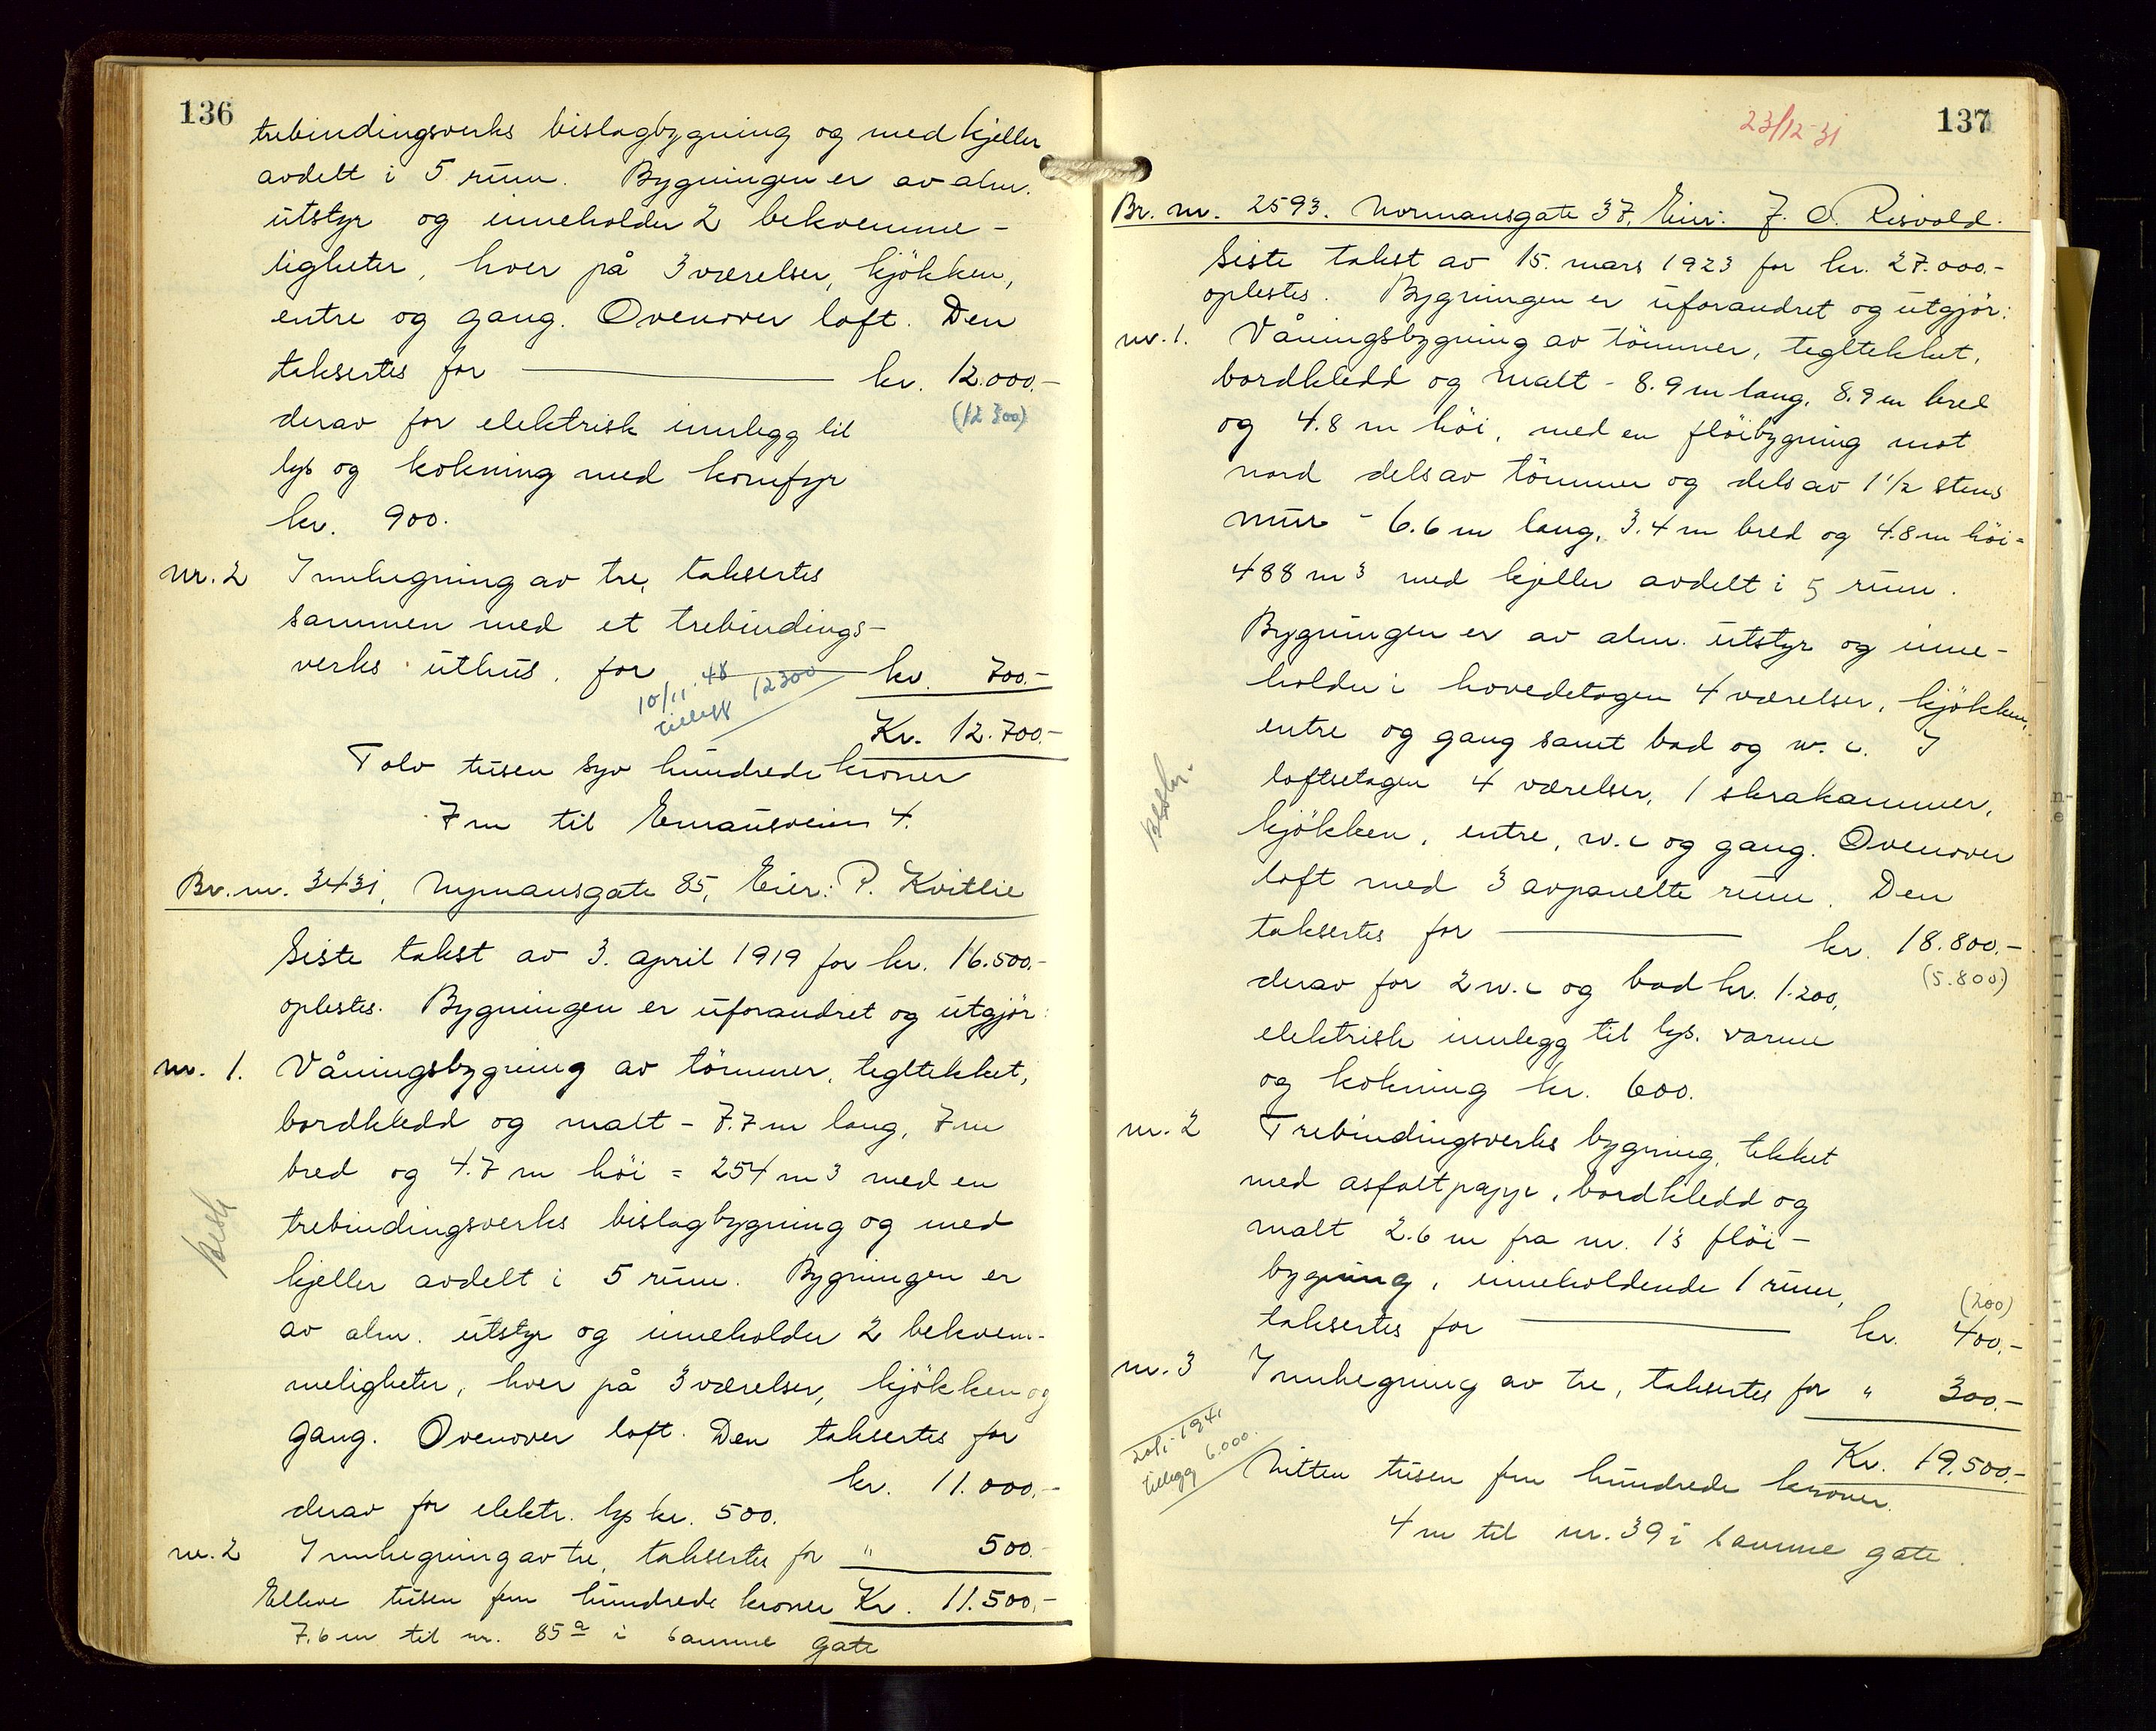 136
trebindingsverks bislagbygning og med kjeller
avdelt i 5 rum. Bygningen er av alm.
utstyr og inneholder 2 bekvemme-
ligheter, hver på 3 værelser, kjökken,
entre og gang. Ovenover loft. Den
taksertes for kr. 12.000.-
(12 300)
derav for elektrisk innlegg til
lys og kokning med komfyr
kr. 900.
nr. 2 Innhegning av tre, taksertes
sammen med et trebindings-
verks uthus, for kr. 700.-
10/11 48
tillegg 12300
Kr. 12.700.-
Tolv tusen syv hundrede kroner
7 m til Emausveien 4.
Br. nr. 3431, Nymansgate 85, Eier: P. Kvitlie
Siste takst av 3. april 1919 for kr. 16.500.-
oplestes. Bygningen er uforandret og utgjör:
nr. 1. Våningsbygning av tömmer, tegltekket,
bordkledd og malt - 7.7 m lang, 7 m
bred og 4.7 m höi = 254 m3 med en
trebindingsverks bislagbygning og med
kjeller avdelt i 5 rum. Bygningen er
av alm. utstyr og inneholder 2 bekvem-
meligheter, hver på 3 værelser, kjökken og
gang. Ovenover loft. Den taksertes for
kr. 11.000.-
derav for elektr. lys kr. 500.
nr. 2 Innhegning av tre, taksertes for " 500.-
Elleve tusen fem hundrede kroner Kr. 11.500,-
7.6 m til nr. 85a i samme gate
137
23/12-31
Br. nr. 2593. Normansgate 37, Eier: J. O. Risvold.
Siste takst av 15. mars 1923 for kr. 27.000.-
oplestes. Bygningen er uforandret og utgjör:
nr. 1. Våningsbygning av tömmer, tegltekket,
bordkledd og malt - 8.9 m lang, 8.9 m bred
og 4.8 m höi, med en flöibygning mot
nord dels av tömmer og dels av 1 1/2 stens
mur - 6.6 m lang, 3.4 m bred og 4.8 m höi =
488 m3 med kjeller avdelt i 5 rum.
Bygningen er av alm. utstyr og inne-
holder i hovedetagen 4 værelser, kjökken,
entre og gang samt bad og w.c. I
loftsetagen 4 værelser, 1 skrakammer,
kjökken, entre, w.c og gang. Ovenover
loft med 3 avpanelte rum. Den
taksertes for kr. 18.800.-
(5.800)
derav for 2 w.c og bad kr. 1.200,
elektrisk innlegg til lys, varme
og kokning kr. 600.
nr. 2 Trebindingsverks bygning, tekket
med asfaltpapp, bordkledd og
malt 2.6 m fra nr. 1s flöi-
bygning, inneholdende 1 rum,
(200)
taksertes for kr. 400.-
nr. 3 Innhegning av tre, taksertes for " 300.-
1941
tillegg 6.000.
Kr. 19.500.-
Nitten tusen fem hundrede kroner.
4 m til nr. 39 i samme gate.